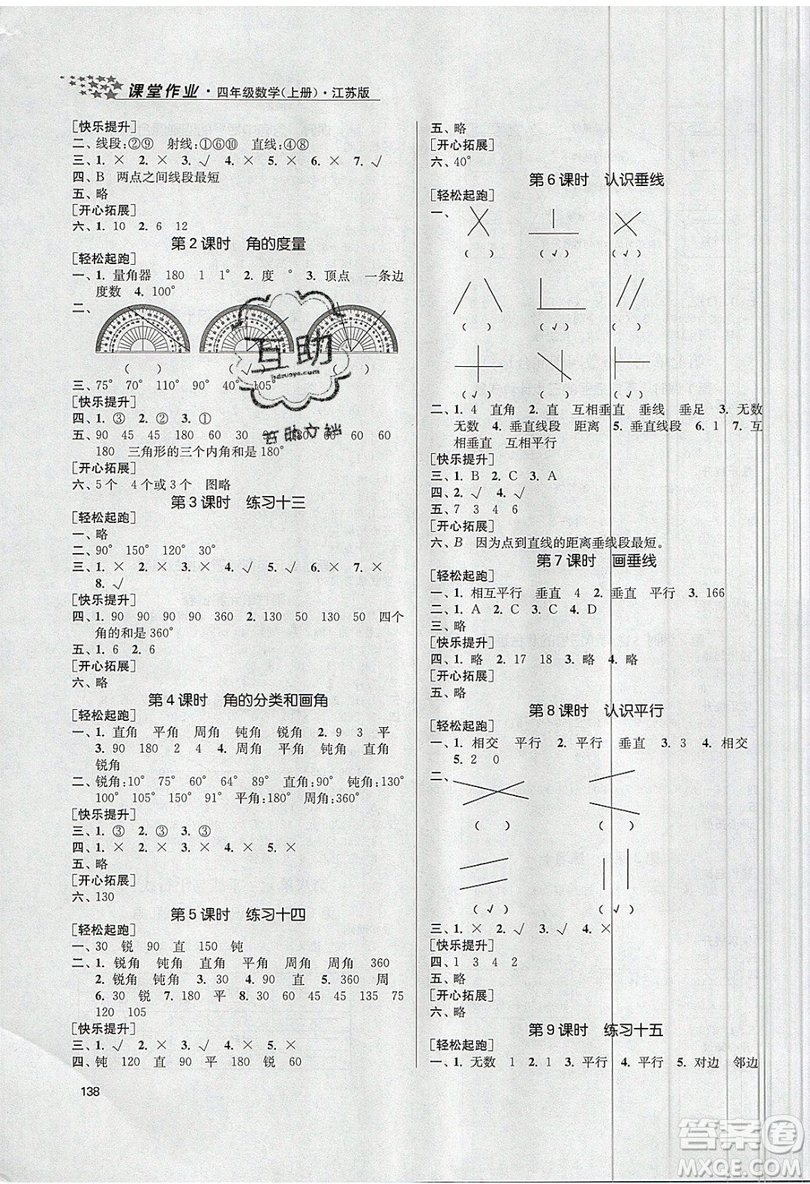 课堂作业·四年级数学(上册)·江苏版
[快乐提升]
二、线段:②⑨ 射线:①⑥⑩ 直线:④⑧
三、1. × 2. × 3. √ 4. × 5. × 6. × 7. √
四、B 两点之间线段最短
五、略
[开心拓展]
六、1. 10 2. 6 12
第2课时 角的度量
[轻松起跑]
一、1. 量角器 180 1 1° 2. 度 ° 3. 顶点 一条边
度数 4. 100°
二、
( ) (
三、75° 70° 110° 90° 40° 105°
[快乐提升]
四、1. ③ 2. ② 3. ①
五、90 45 45 180 60 60 60
180 三角形的三个内角和是180°
[开心拓展]
六、5个 4个或3个 图略
第3课时 练习十三
[轻松起跑]
一、略
二、90° 150° 90° 180°
三、1. × 2. × 3. × 4. √ 5. √ 6. √ 7. ×
8. √
[快乐提升]
四、1. 90 90 90 360 2. 50 130 50 130 四个
角的和是360°
五、1. 6 2. 6
[开心拓展]
六、略
第4课时 角的分类和画角
[轻松起跑]
一、1. 直角 平角 周角 钝角 锐角 2. 9 3 平
3. 90 180 2 4 4. 周角 平角 钝角 直角
锐角
二、锐角:10° 75° 60° 64° 89° 直角:90° 钝角:130°
100° 105° 150° 91° 平角:180° 周角:360°
[快乐提升]
三、1. ③ 2. ③ 3. ③
四、1. × 2. × 3. × 4. × 5. ×
五、略
[开心拓展]
六、130
第5课时 练习十四
[轻松起跑]
一、30 锐 90 直 150 钝
二、1. 锐角 钝角 直角 平角 周角 周角 360
2. 锐角 3. 锐角 4. 90 5. 直角 6. 360 周
7. 30 锐 8. 180 平 9. 30 60 45 135 75
120 105
三、1. √ 2. √ 3. × 4. × 5. × 6. ×
[快乐提升]
四、钝 120 直 90 锐 180 锐 60
138
五、略
[开心拓展]
六、40°
第6课时 认识垂线
[轻松起跑]
一、
( ) ( √ ) ( √ )
( ) ( √ ) ( )
( √ ) ( ) ( √ )
二、1. 4 直角 2. 直 互相垂直 垂线 垂足 3. 无数
无数 4. 垂直线段 距离 5. 垂直线段 6. 1 7. 互
相垂直 互相平行
[快乐提升]
三、1. B 2. C 3. A
四、1. √ 2. × 3. √
五、7 3 4 6
[开心拓展]
六、B 因为点到直线的距离垂线段最短。
第7课时 画垂线
[轻松起跑]
一、1. 相互平行 垂直 4 2. 垂直 平行 3. 166
二、1. A 2. D 3. C 4. D
三、略
[快乐提升]
四、1. 略 2. 17 18 3. 略 4. 略
[开心拓展]
五、略
第8课时 认识平行
[轻松起跑]
一、1. 相交 平行 2. 平行 垂直 3. 3 4. 相交
5. 2 0
二、
( ) ( )
( √ ) ( √ )
三、1. × 2. √ 3. √ 4. ×
[快乐提升]
四、1 3 4 2
[开心拓展]
五、略
第9课时 练习十五
[轻松起跑]
一、1. 无数 1 2. 1 3. 平行 4. 平行 5. 对边 邻边
互助
hdzuoye.com
互助文档
答案圈
MXQE.COM